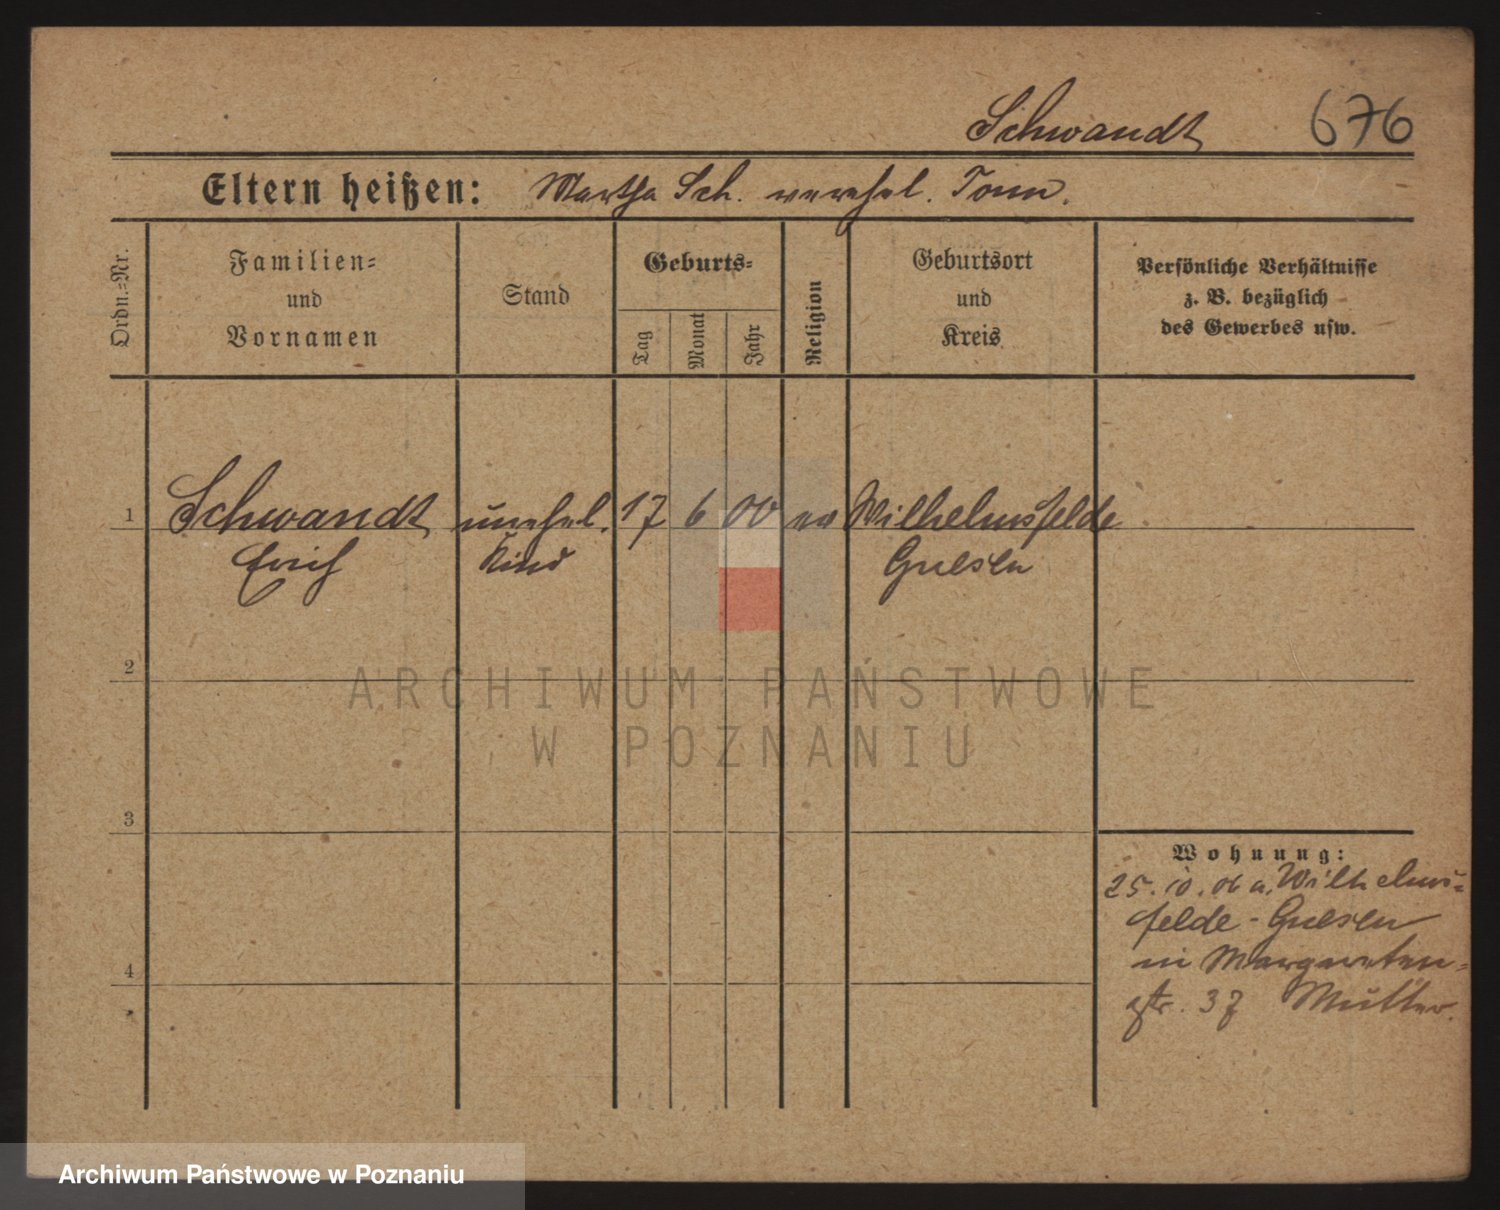 Schwandt 676
Eltern heißen: Martha Sch. verehel. Tonn.
Ordn.=Nr.
Familien=
und
Vornamen
Stand
Geburts=
Tag
Monat
Jahr
Religion
Geburtsort
und
Kreis
Persönliche Verhältnisse
z. B. bezüglich
des Gewerbes usw.
1 Schwandt unehel. 17 6 00 ev Wilhelmsfelde
Erich Kind Gnesen
2
3
4
Wohnung:
25.10.06 a. Wilhelms=
felde - Gnesen
in Margareten=
str. 37 Mutter.
ARCHIWUM PAŃSTWOWE
W POZNANIU
Archiwum Państwowe w Poznaniu